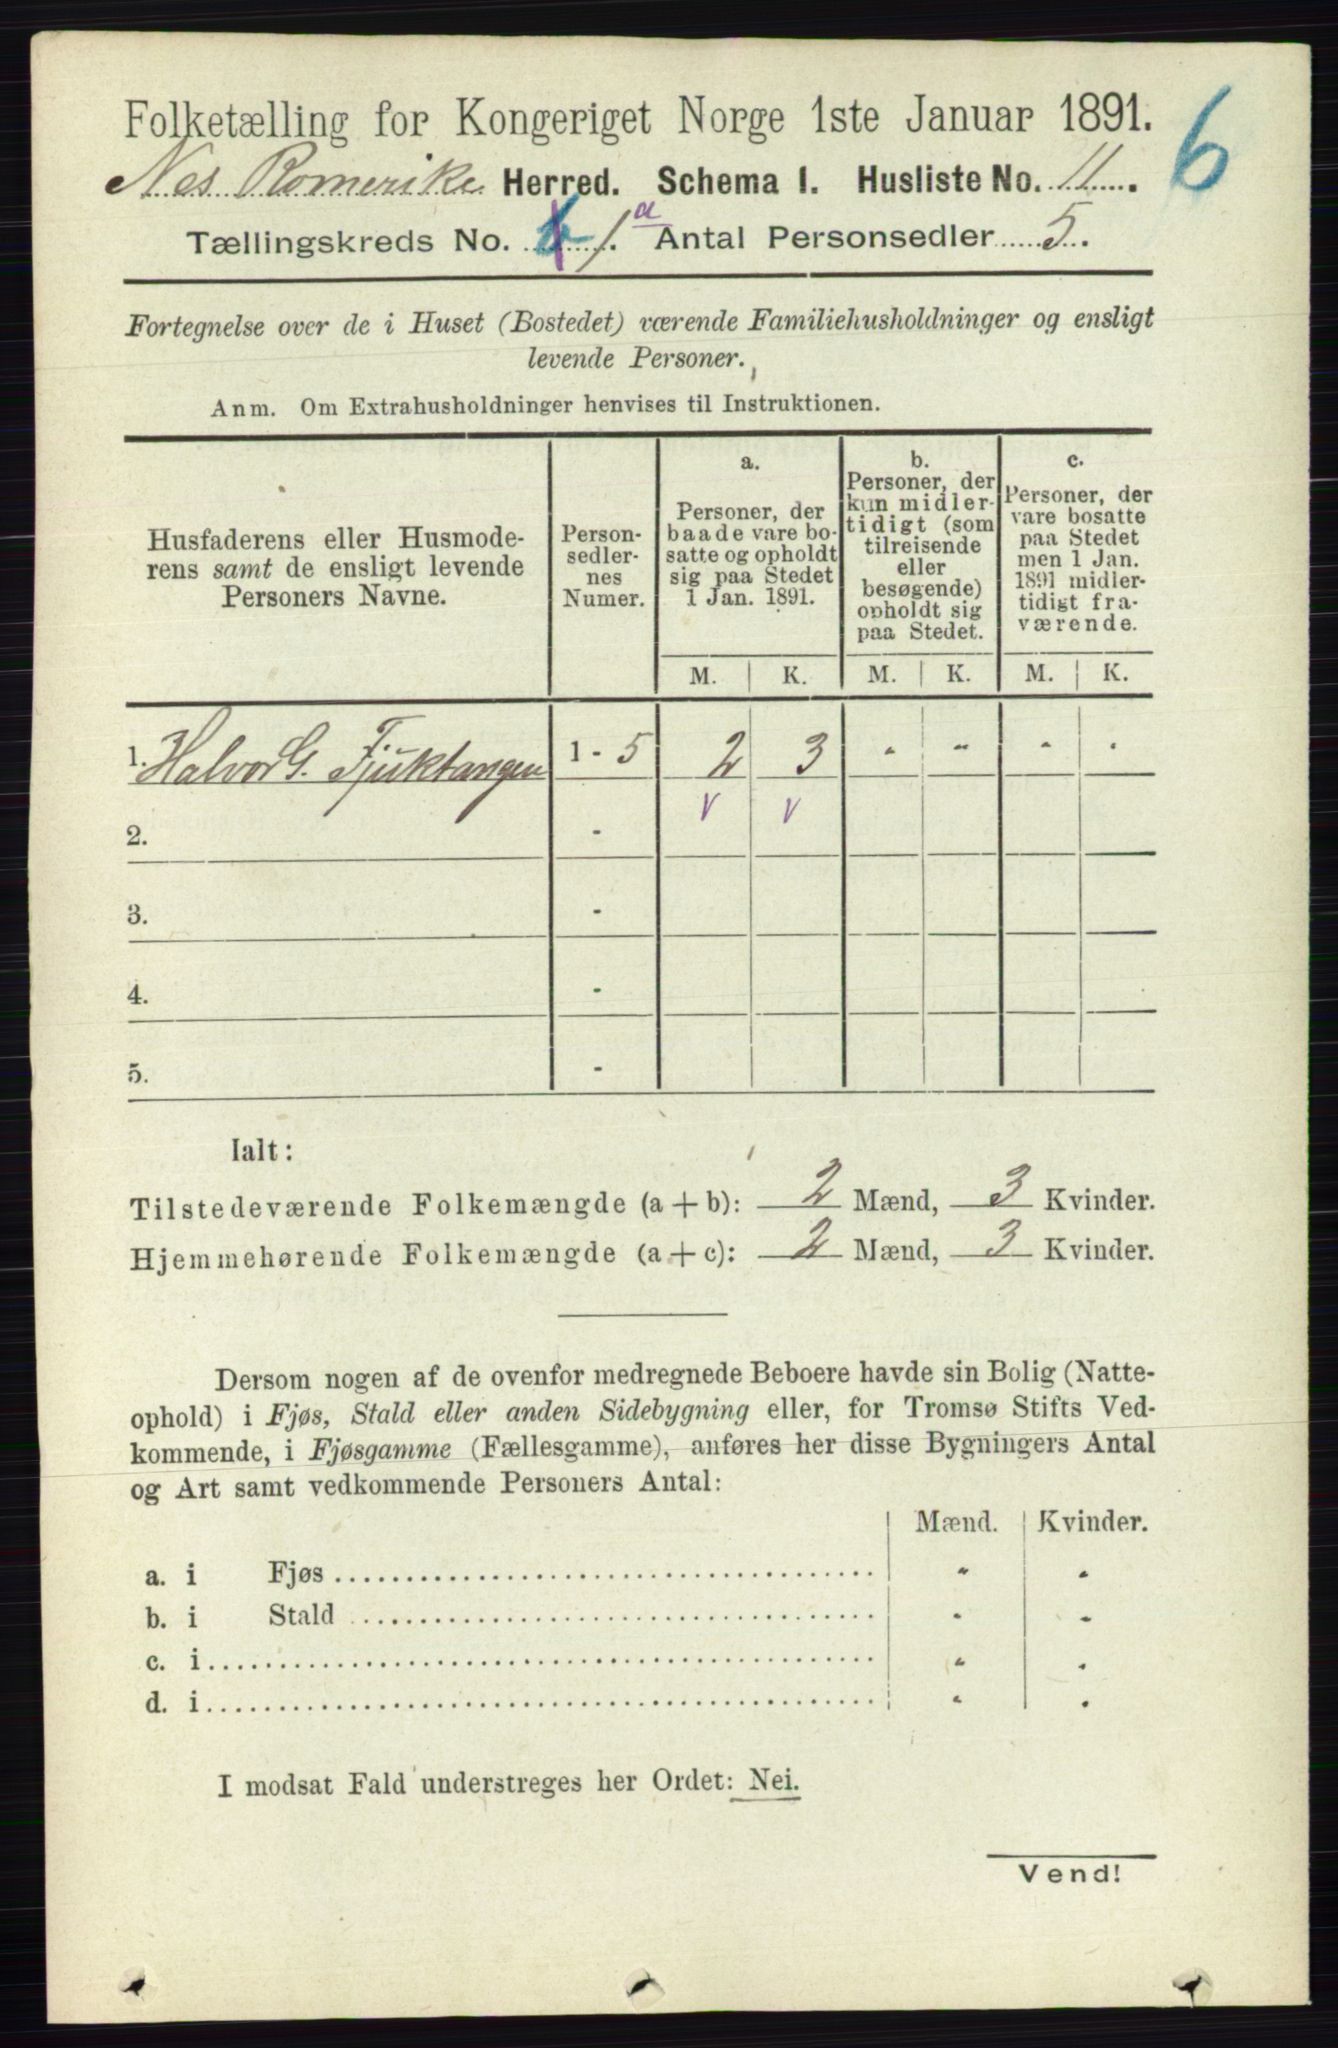 Folketælling for Kongeriget Norge 1ste Januar 1891.
6
Nes Romerike Herred. Schema I. Husliste No. 11.
Tællingskreds No. 6 1a. Antal Personsedler 5.
Fortegnelse over de i Huset (Bostedet) værende Familiehusholdninger og ensligt
levende Personer.
Anm. Om Extrahusholdninger henvises til Instruktionen.
Husfaderens eller Husmode-
rens samt de ensligt levende
Personers Navne.
Person-
sedler-
nes
Numer.
a.
Personer, der
baade vare bo-
satte og opholdt
sig paa Stedet
1 Jan. 1891.
b.
Personer, der
kun midler-
tidigt (som
tilreisende
eller
besøgende)
opholdt sig
paa Stedet.
c.
Personer, der
vare bosatte
paa Stedet
men 1 Jan.
1891 midler-
tidigt fra-
værende.
M. K. M. K. M. K.
1. Halvor G. Fjuktangen 1 - 5 2 3 " " " "
v v
2. -
3. -
4. -
5. -
Ialt:
Tilstedeværende Folkemængde (a + b): 2 Mænd, 3 Kvinder.
Hjemmehørende Folkemængde (a + c): 2 Mænd, 3 Kvinder.
Dersom nogen af de ovenfor medregnede Beboere havde sin Bolig (Natte-
ophold) i Fjøs, Stald eller anden Sidebygning eller, for Tromsø Stifts Ved-
kommende, i Fjøsgamme (Fællesgamme), anføres her disse Bygningers Antal
og Art samt vedkommende Personers Antal:
Mænd. Kvinder.
a. i Fjøs " "
b. i Stald " "
c. i " "
d. i " "
I modsat Fald understreges her Ordet: Nei.
Vend!